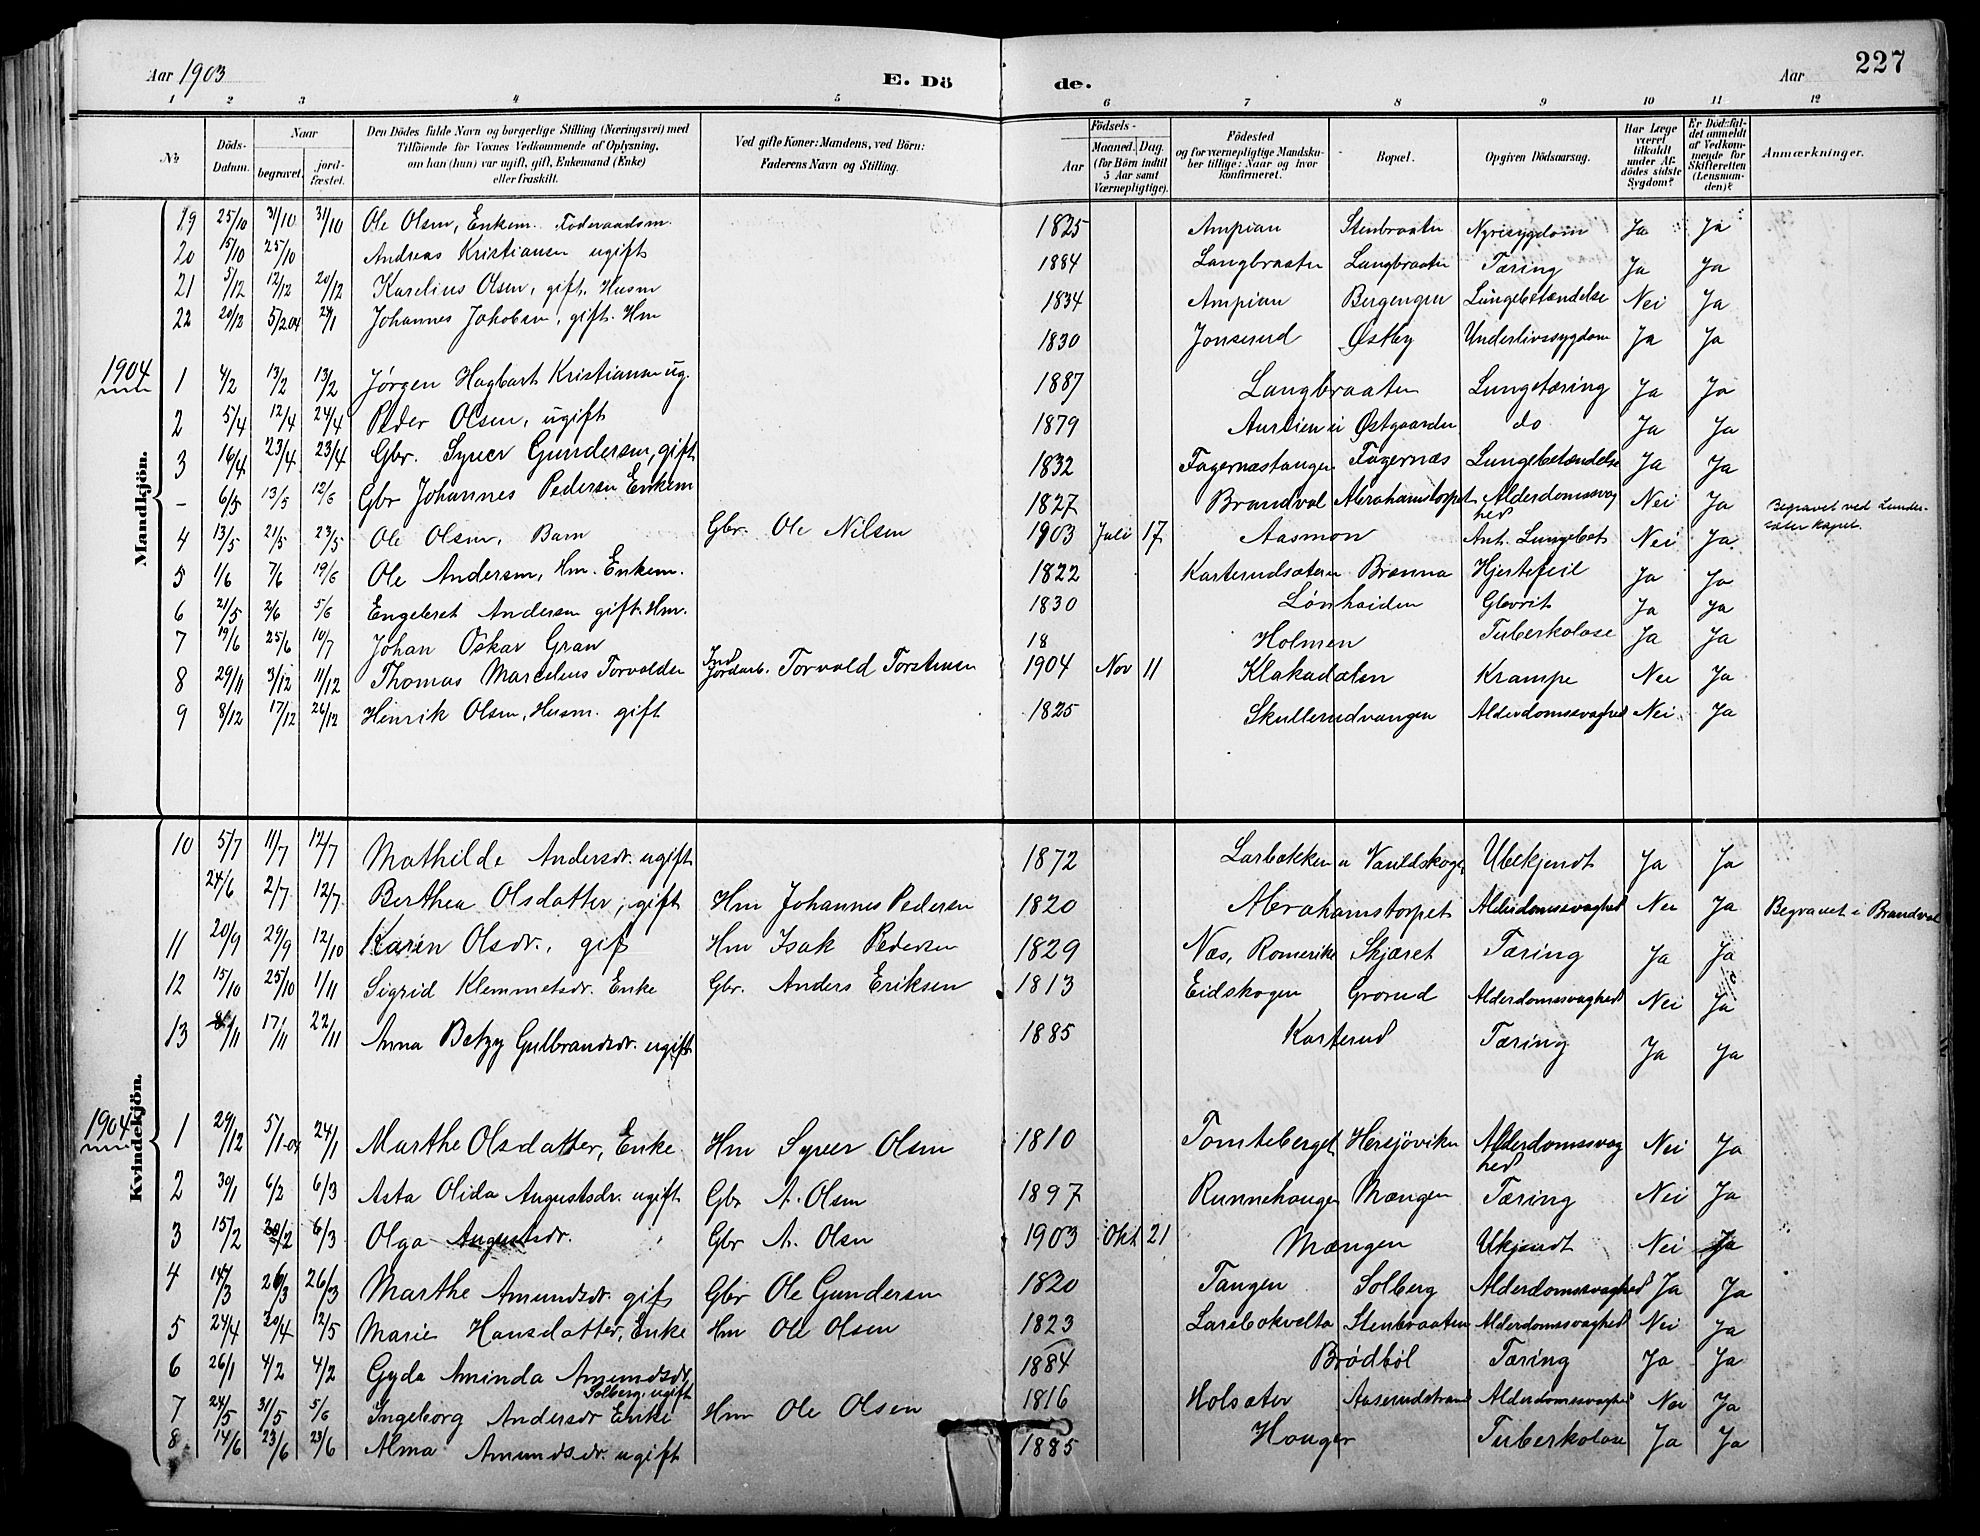 Aar 1903
E. Dö
de.
Aar
227
1 2 3 4 5 6 7 8 9 10 11 12
№
Döds-Datum.
Naar
begravet.
jord-fæstet.
Den Dödes fulde Navn og borgerlige Stilling (Næringsvei) med
Tilföiende for Voxnes Vedkommende af Oplysning,
om han (hun) var ugift, gift, Enkemand (Enke)
eller fraskilt.
Ved gifte Koner: Mandens, ved Börn:
Faderens Navn og Stilling.
Födsels-
Aar
Maaned. Dag.
(for Börn indtil
5 Aar samt
Værnepligtige).
Födested
og for værnepligtige Mandska-
ber tillige: Naar og hvor
konfirmeret.
Bopæl.
Opgiven Dödsaarsag.
Har Læge
været
tilkaldt
under Af-
dödes sidste
Sygdom?
Er Dödsfal-
det anmeldt
af Vedkom-
mende for
Skifteretten
(Lensman-
den)?
Anmærkninger.
Mandkjön.
19 25/10 31/10 31/10 Ole Olsen, Enkem. Föderaadsm. 1825 Ampian Stenbraaten Nyresygdom Ja Ja
20 15/10 25/10 Andreas Kristiansen ugift 1884 Langbraaten Langbraaten Tæring Ja Ja
21 5/12 12/12 20/12 Karelius Olsen, gift. Husm 1834 Ampian Lungebetændelse Nei Ja
22 20/12 5/2 04 24/1 Johannes Jakobsen, gift. Hm 1830 Jonserud Østby Underlivssygdom Ja Ja
1904
1 4/2 13/2 13/2 Jørgen Hagbart Kristiansen ug. 1887 Langbraaten Lungetæring Ja Ja
2 5/4 12/4 24/4 Peder Olsen, ugift 1879 Østgaarden do Ja Ja
3 16/4 23/4 23/4 Gbr. Syver Gundersen, gift 1832 Fagernæstangen Fagernæs Lungebetændelse Ja Ja
- 6/5 13/5 12/6 Gbr Johannes Pedersen Enkem 1827 Brandval Abrahamstorpet Alderdomssvag
hed Nei Ja Begravet ved Lunder-
sæter Kapel.
4 13/5 21/5 23/5 Ole Olsen, Barn Gbr. Ole Nilsen 1903 Juli 17 Aasmon Ant. Lungebet Nei Ja.
5 1/6 7/6 19/6 Ole Andersen, Hm. Enkem. 1822 Karterudsæteren Brænna Hjertefeil Ja Ja
6 21/5 2/6 5/6 Engebret Andersen gift. Hm. 1830 Lønhaiden Ja Ja
7 19/6 25/6 10/7 Johan Oskar Gran 18 Holmen Tuberkolose Ja Ja
8 29/11 3/12 11/12 Thomas Marcelius Torvaldsen Ind
Jordarb. Torvald Torstensen 1904 Nov 11 Klakadalen Krampe Nei Ja
9 8/12 17/12 26/12 Henrik Olsen, Husm. gift 1825 Skullerudvangen Alderdomssvaghed Nei Ja
Kvindekjön.
10 5/7 11/7 12/7 Mathilde Andersdr. ugift 1872 Larbakken Varildskogen Ubekjendt Ja Ja
24/6 2/7 12/7 Berthea Olsdatter, gift Hm Johannes Pedersen 1820 Abrahamstorpet Alderdomssvaghed Nei Ja Begravet i Brandval
11 20/9 29/9 12/10 Karen Olsdr., gift Hm Isak Pedersen 1829 Næs, Romerike Skjæret Tæring Ja Ja
12 15/10 25/10 1/11 Sigrid Klemmetsdr. Enke Gbr. Anders Eriksen 1813 Eidskogen Grorud Alderdomssvaghed Nei Ja
13 8/11 17/11 22/11 Anna Betzy Gulbrandsdr. ugift 1885 Karterud Tæring Ja Ja
1904
1 29/12 5/1-04 24/1 Marthe Olsdatter, Enke Hm Syver Olsen 1810 Tomteberget Hersjøviken Alderdomssvag
hed Nei Ja
2 30/1 6/2 6/3 Asta Olida Augustsdr. ugift Gbr A. Olsen 1897 Runnehaugen Mangen Tæring Nei Ja
3 15/2 /2 6/3 Olga Augustsdr. Gbr A. Olsen 1903 Okt 21 Mangen Ukjendt Nei Ja
4 14/3 26/3 26/3 Marthe Amundsdr. gift Gbr Ole Gundersen 1820 Tangen Solberg Alderdomssvaghed Ja Ja
5 24/4 30/4 12/5 Marie Hansdatter, Enke Hm Ole Olsen 1823 Larsbakvelta Stenbraaten Alderdomssvaghed Nei Ja
6 26/1 4/2 4/2 Gyda Aminda Amundsdr,
Solberg, ugift 1884 Brødbøl Tæring Ja Ja
7 24/5 31/5 5/6 Ingeborg Andersdr Enke Hm Ole Olsen 1816 Holsæter Aaserudstrand Alderdomssvaghed Nei Ja
8 14/6 23/6 23/6 Alma Amundsdr. ugift 1885 Hauger Tuberkolose Ja Ja